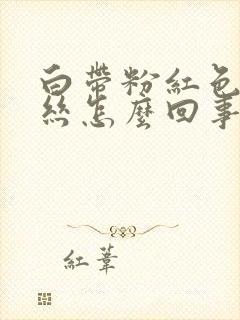 白帶粉紅色
絲怎麼回事
紅葦